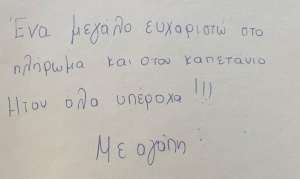 Ένα μεγάλο ευχαριστώ στο
πλήρωμα και στον καπετάνιο
Ήταν όλα υπέροχα!!!
Με αγάπη :